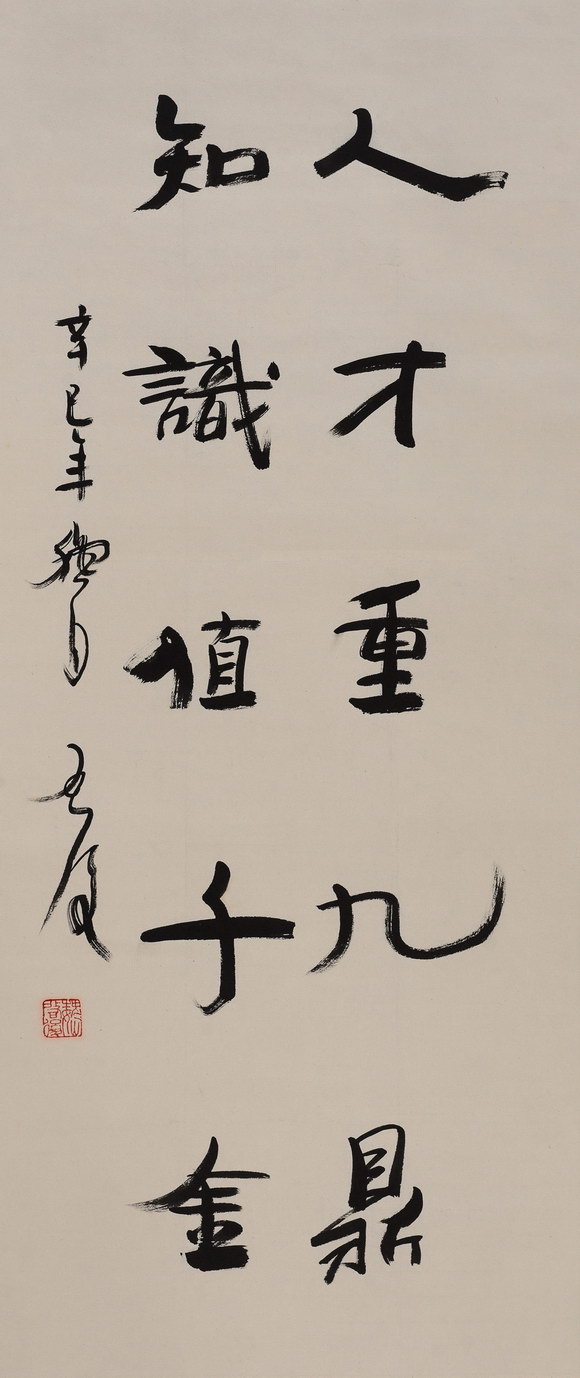 人才重九鼎
知識值千金
辛巳年